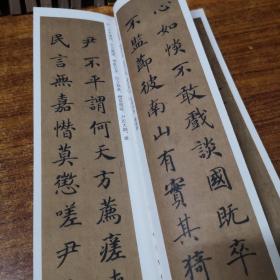 心如惔不敢戲談國既卒
不監節彼南山有實其猗
尹不平謂何天方薦瘥
民言無嘉憯莫懲嗟尹